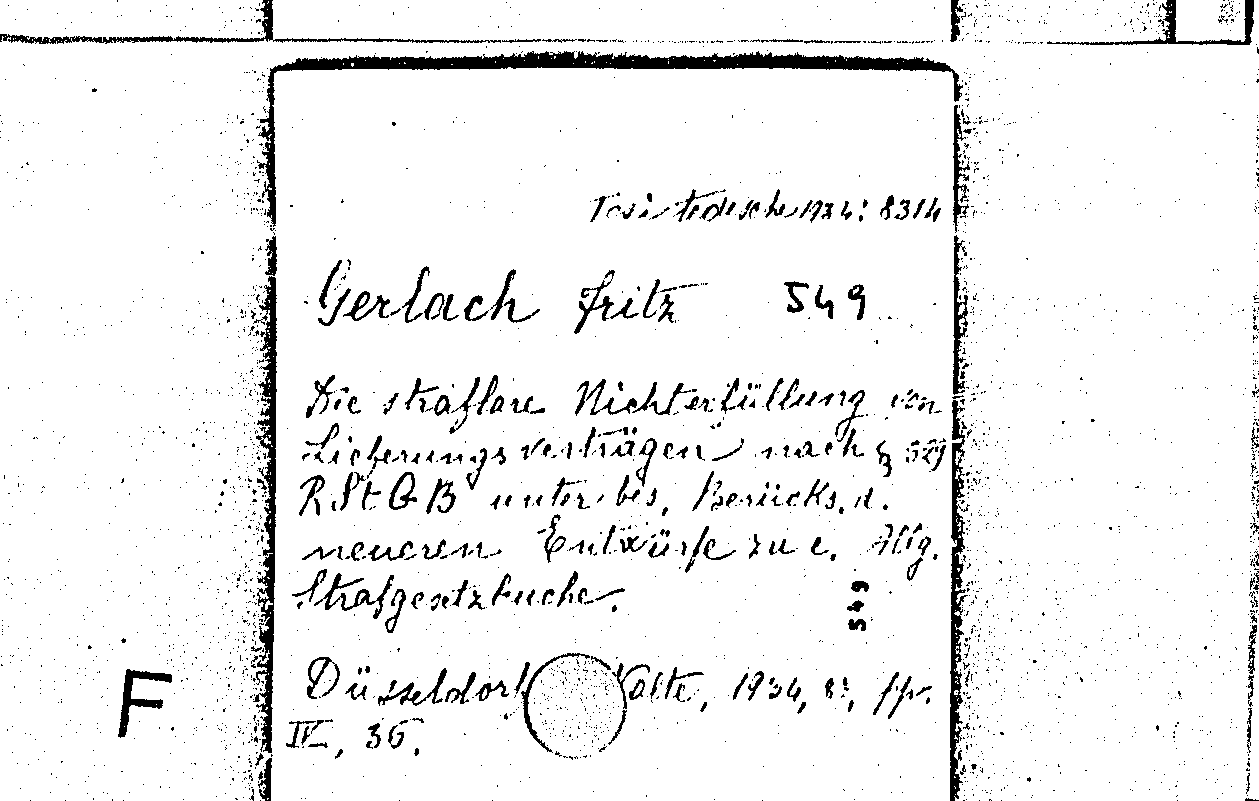 Tesi tedesche 1934: 8314
Gerlach Fritz 549
Die strafbare Nichterfüllung von
Lieferungsverträgen nach § 329
RStGB unter bes. Berücks. d.
neueren Entwürfe zu e. Allg.
Strafgesetzbuche.
549
Düsseldorf Nolte, 1934, 8º, pp.
IV, 36.
F